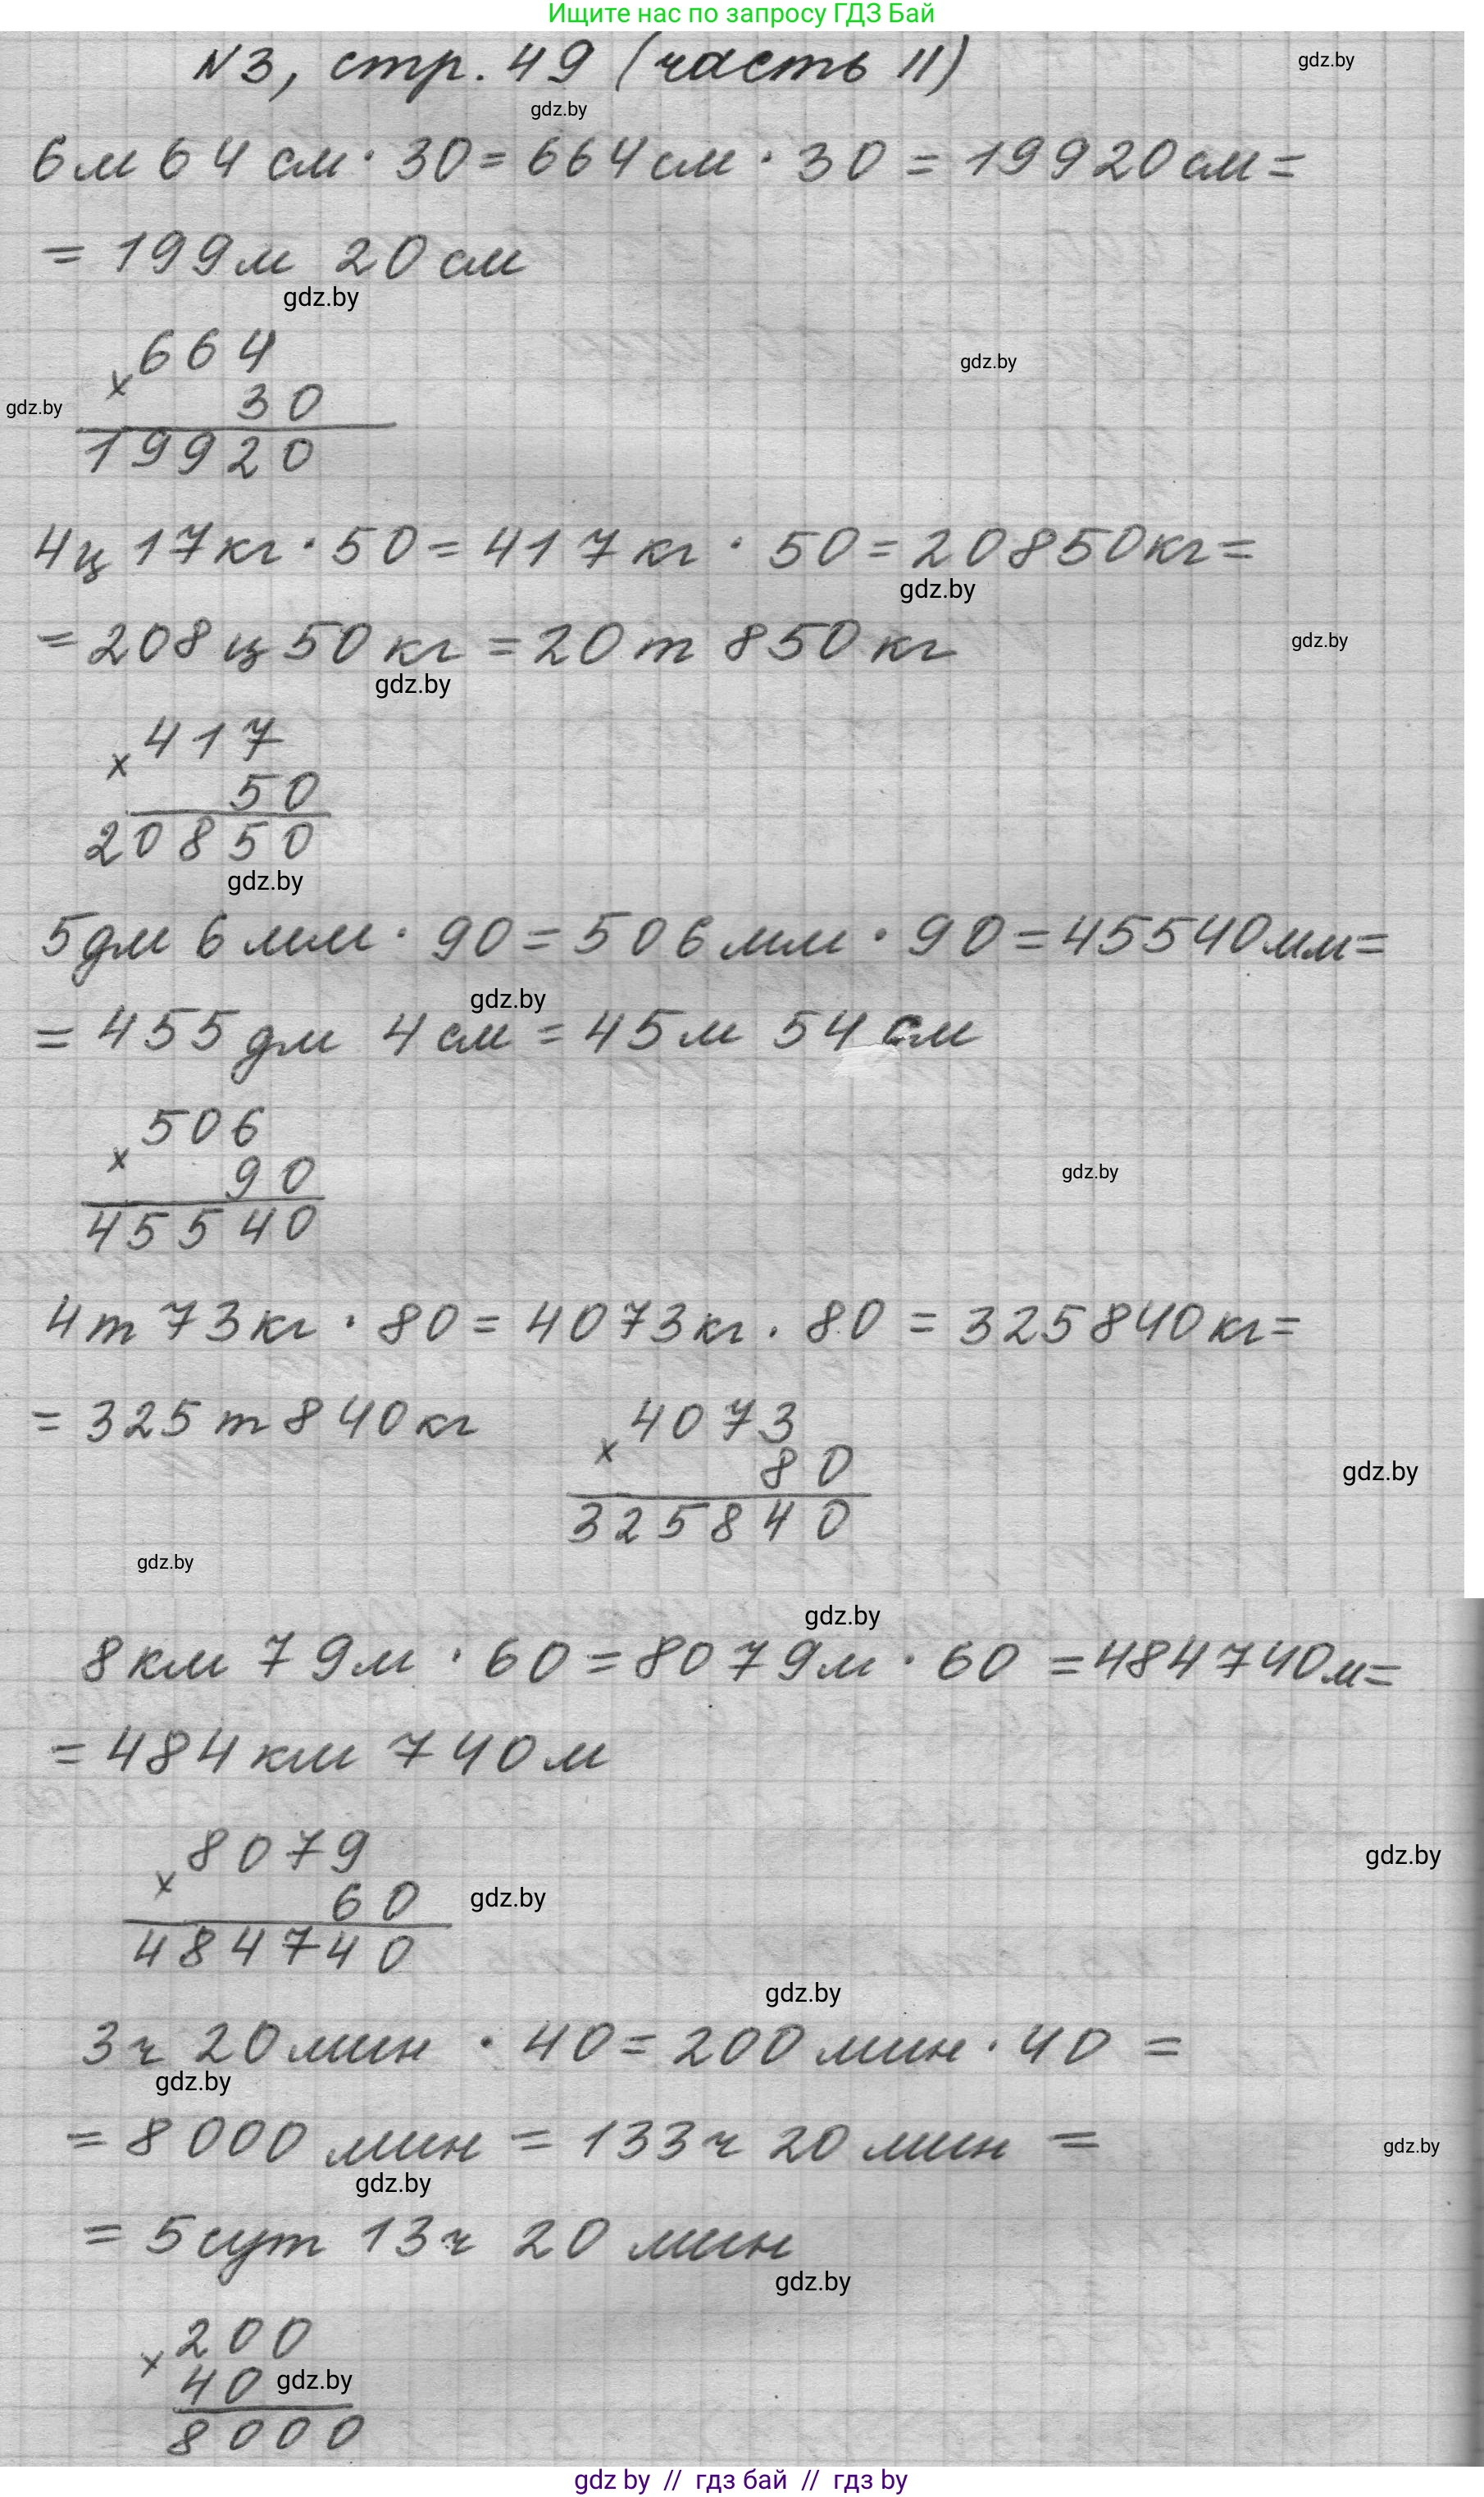 Ищите нас по запросу ГДЗ Бай
N3, стр. 49 (часть II)
gdz.by
gdz.by
6м 64 см · 30 = 664 см · 30 = 19920 см =
= 199 м 20 см
gdz.by
× 664
gdz.by
30
gdz.by
19920
4ц 17 кг · 50 = 417 кг · 50 = 20850 кг =
gdz.by
= 208 ц 50 кг = 20 т 850 кг
gdz.by
gdz.by
× 417
50
20850
gdz.by
5 дм 6 мм · 90 = 506 мм · 90 = 45540 мм =
gdz.by
= 455 дм 4 см = 45 м 54 см
× 506
90
gdz.by
45540
4 т 73 кг · 80 = 4073 кг · 80 = 325840 кг =
= 325 т 840 кг
× 4073
80
gdz.by
325840
gdz.by
gdz.by
8 км 79 м · 60 = 8079 м · 60 = 484740 м =
= 484 км 740 м
× 8079
gdz.by
60
gdz.by
484740
gdz.by
3 ч 20 мин · 40 = 200 мин · 40 =
gdz.by
= 8000 мин = 133 ч 20 мин =
gdz.by
gdz.by
= 5 сут 13 ч 20 мин
gdz.by
× 200
40
gdz.by
8000
gdz by // гдз бай // гдз by